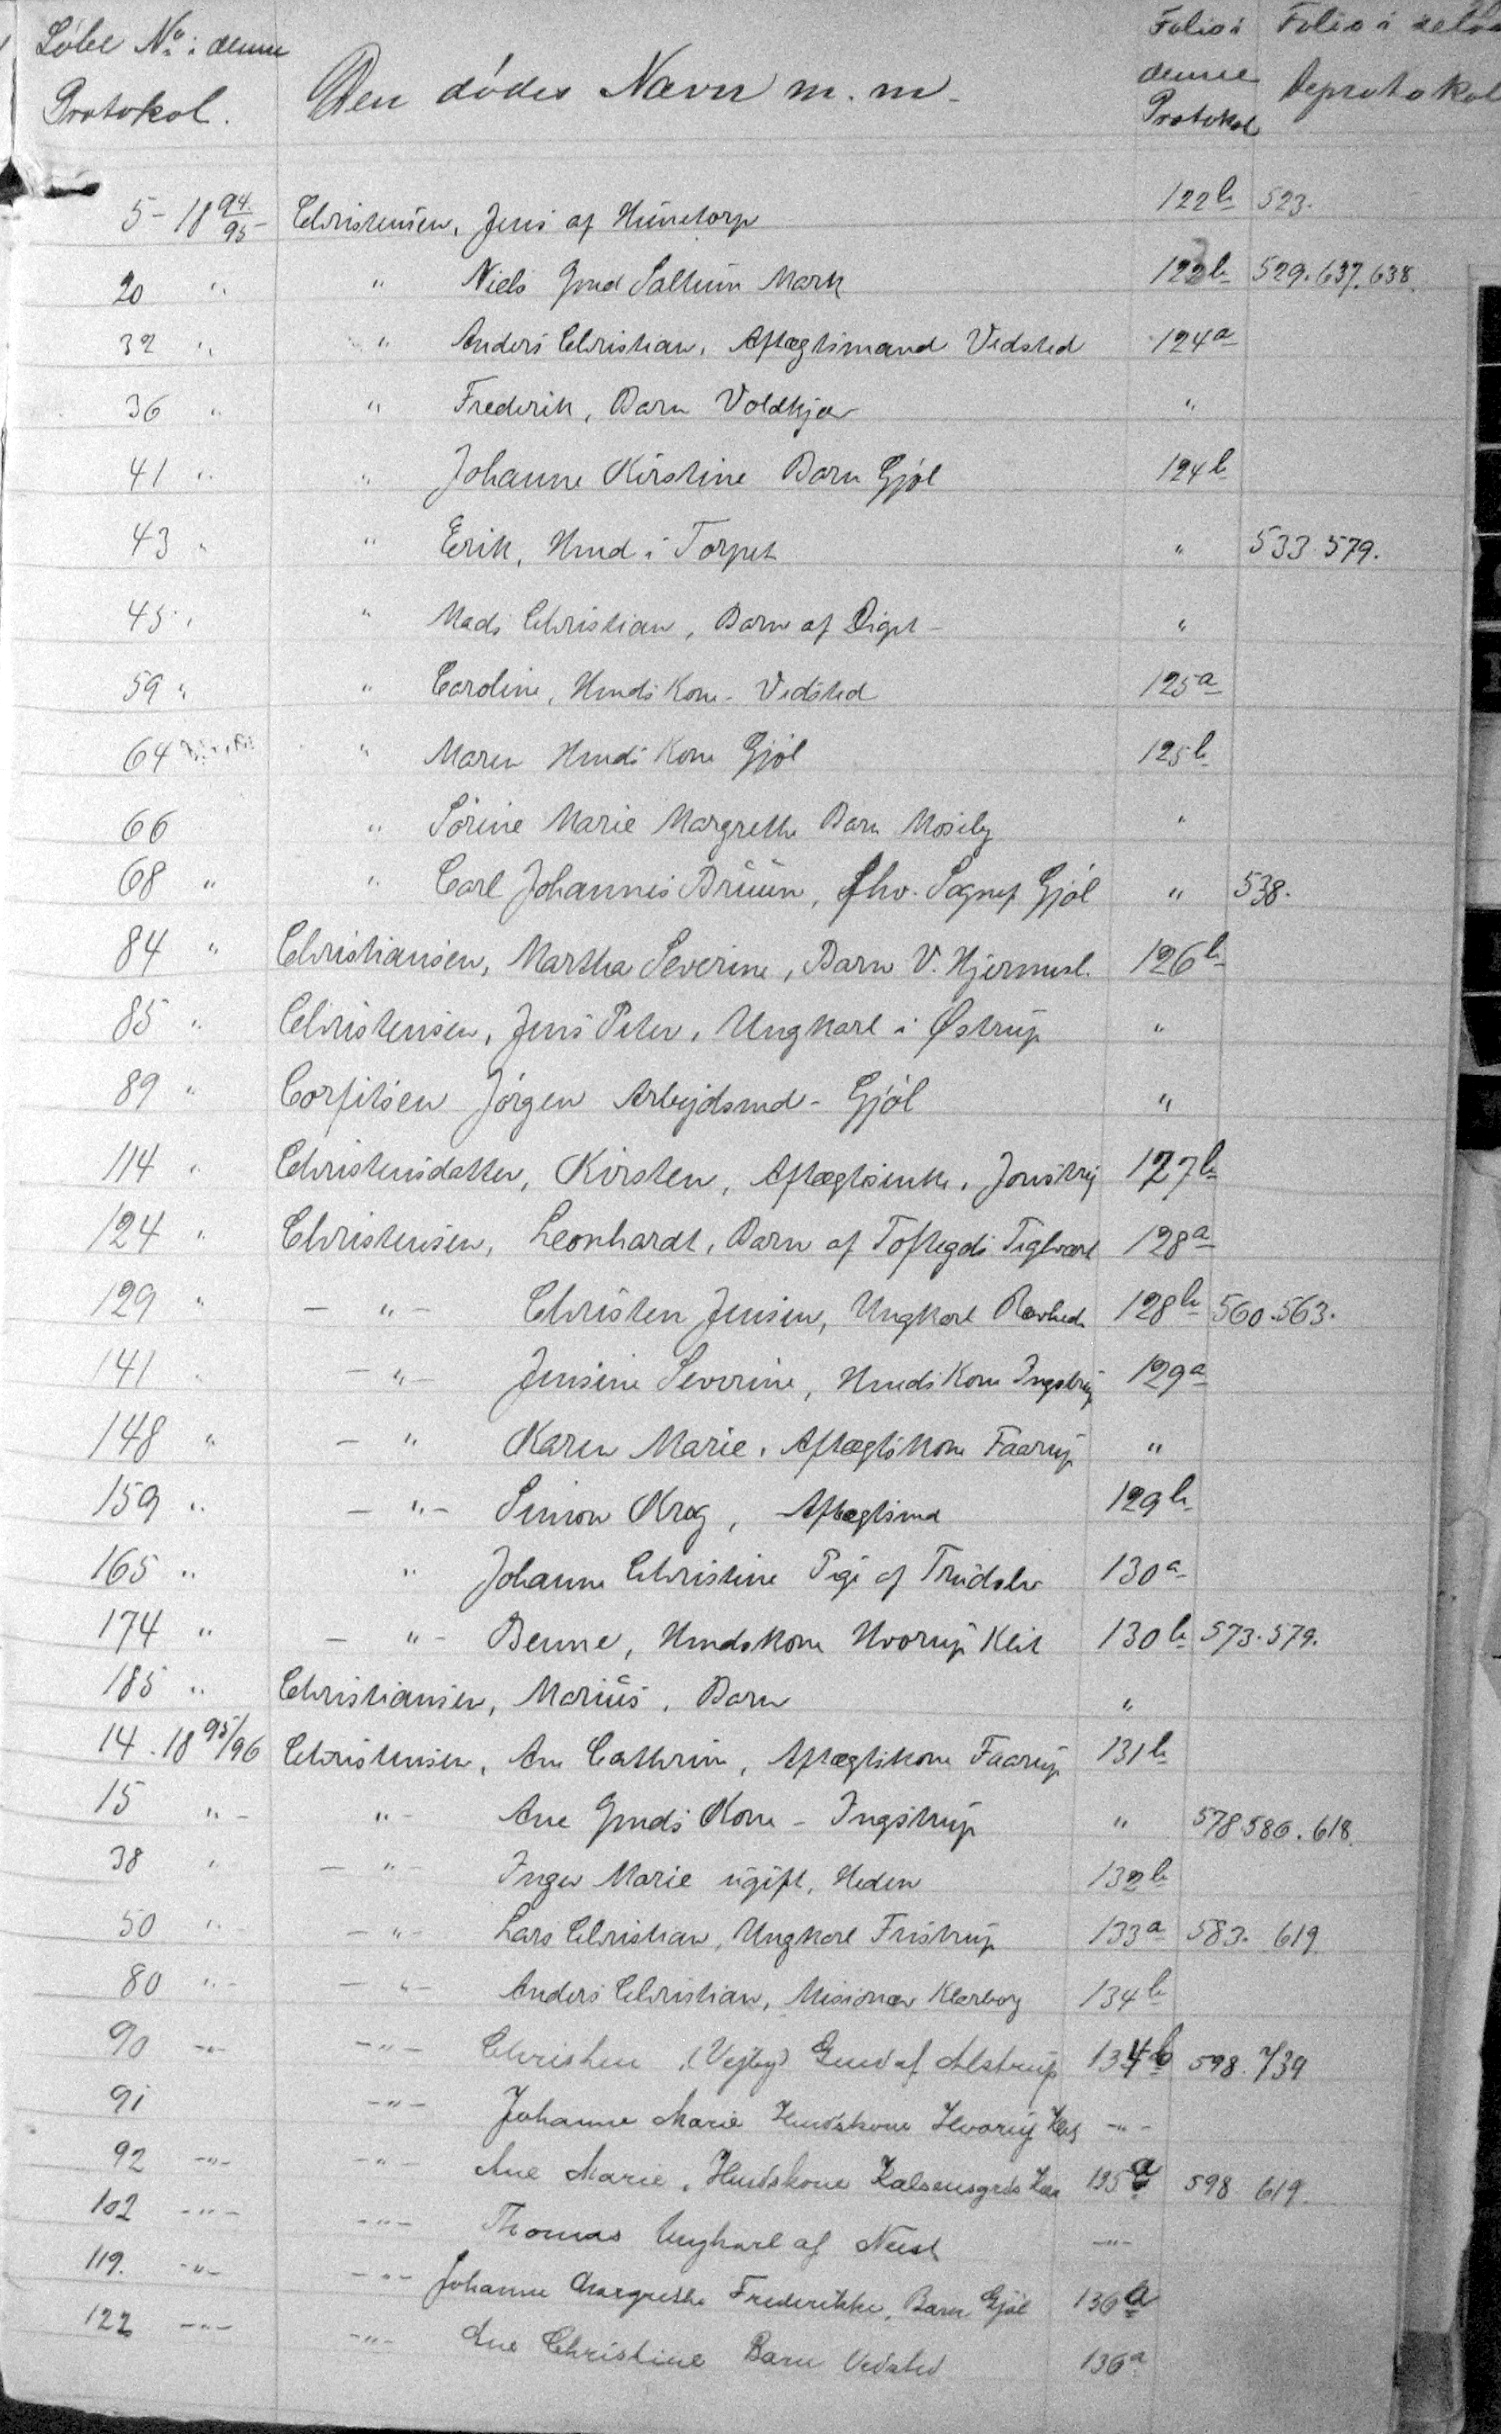 Løbe No i denne Protokol. | Den dødes Navn m. m. | Folio i denne Protokol | Folio i
5 - 18 94/95 - Christensen, Jens af Hunetorp 122b 523.
20 " " Niels Gmd Saltum Mark 122b 529. 637. 638.
32 " " Anders Christian, Aftægtsmand Vedsted 124a
36 " " Frederik, Barn Voldkjær "
41 " " Johanne Kirstine Barn Gjøl 124b
43 " " Erik, Hmd i Torpet " 533 579.
45 " " Mads Christian, Barn af Diget - "
59 " " Caroline, Hmds Kone - Vedsted 125a
64 " Maren Hmds Kone Gjøl 125b
66 " Sørine Marie Margrethe Barn Moseby "
68 " " Carl Johannes Brüün, fhv. Sognef Gjøl " 538.
84 " Christiansen, Martha Severine, Barn V. Hjermesl. 126b
85 " Christensen, Jens Peter, Ungkarl i Østrup "
89 " Corfitsen Jørgen Arbejdsmd - Gjøl "
114 " Christensdatter, Kirsten, Aftægtsenke, Jonstrup 127b
124 " Christensen, Leonhardt, Barn af Toftegds Teglværk 128a
129 " - " - Christen Jensen, Ungkarl Ravhede 128b 560. 563.
141 " - " - Jensine Severine, Hmds Kone Ingstrup 129a
148 " - " Karen Marie, Aftægtskone Faarup "
159 " - " - Simon Krog, Aftægtsmd 129b
165 " " Johanne Christine Pige af Trudslev 130a
174 " - " - Benne, Hmdskone Hvorup Klit 130b 573. 579.
185 " Christiansen, Marius, Barn "
14 - 18 95/96 Christensen, Ane Cathrine, Aftægtskone Faarup 131b
15 " - " - Ane Gmds Kone - Ingstrup " 578 586. 618.
38 " - " - Inger Marie ugift, Heden 132b
50 " - - " - Lars Christian, Ungkarl Fristrup 133a 583. 619
80 " - - " - Anders Christian, Missionær Klarborg 134b
90 - " - - " - Christen (Vejby) Gmd af Alstrup 134b 598. 739
91 - " - Johanne Marie Hmdskone Hvorup Klit - " -
92 - " - - " - Ane Marie, Hmdskone Kalsensgrds Kær 135a 598 619.
102 - " - - " - Thomas Ungkarl af Neest - " -
119. - " - - " - Johanne Margrethe Frederikke, Barn Gjøl 136a
122 - " - - " - Ane Christine Barn Vedsted 136a